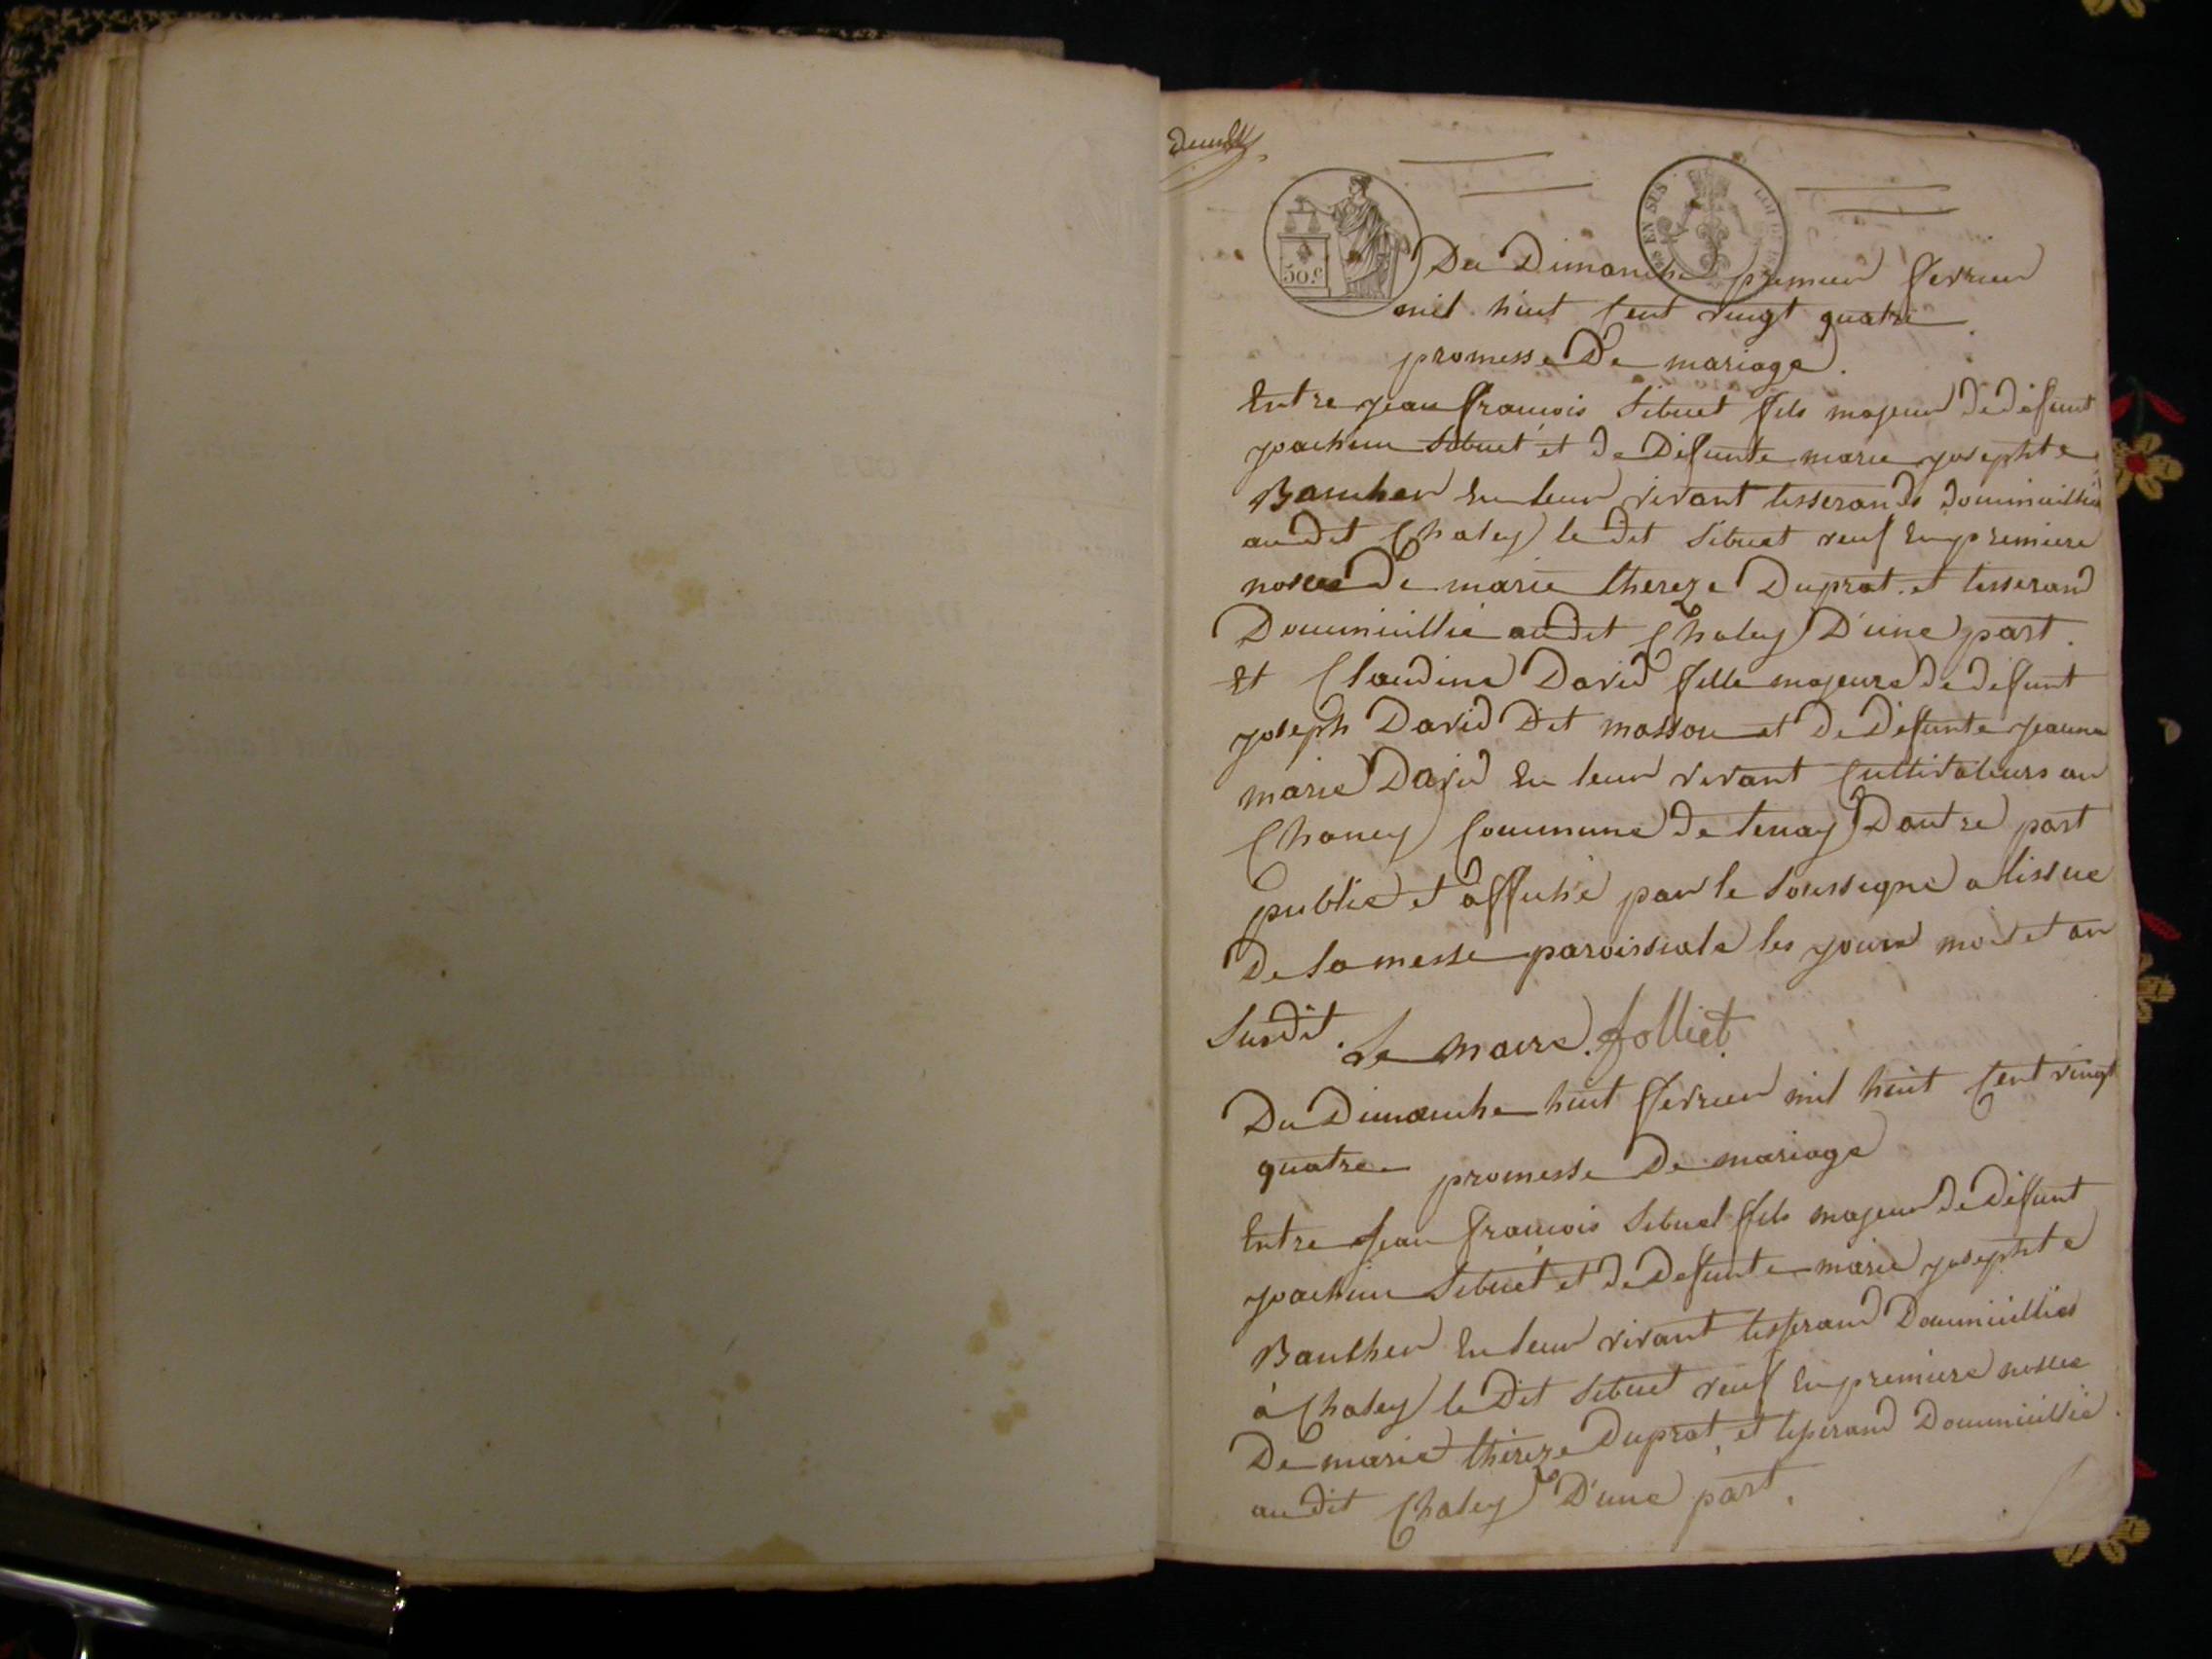 50.c
EN SUS
Du Dimanche premier fevrier
mil huit Cent vingt quatre
promesse De mariage.
Entre jean francois Sibuet fils majeur de defunt
joachim Sibuet et de Defunte marie josephte
Baucher En leur vivant tisserands Doumicillies
audit Chaley le dit Sibuet veuf En premiere
nosses De marie thereze Duprat et tisserand
Doumicillié audit Chaley D'une part.
Et Claudine David fille majeure de defunt
joseph David Dit masson et De Defunte jeanne
marie David En leur vivant Cultivateurs au
Chaney Commune de tenay Dautre part
publié et affiché par le Soussigne a lissue
De la messe paroissiale les jours mois et an
Susdit. Le maire. Jolliet
Du Dimanche huit fevrier mil huit Cent vingt
quatre promesse De mariage
Entre jean francois Sibuet fils majeur de Defunt
joachim Sibuet et de Defunte marie josephte
Baucher En leur vivant tisserand Doumicillies
à Chaley le Dit Sibuet veuf En premiere nosses
De marie thereze Duprat, et tisserand Doumicillié
au dit Chaley D'une part.